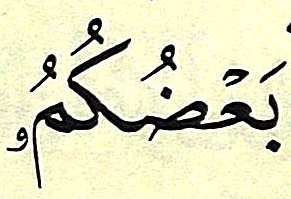 بَعۡضُكُمُۥ